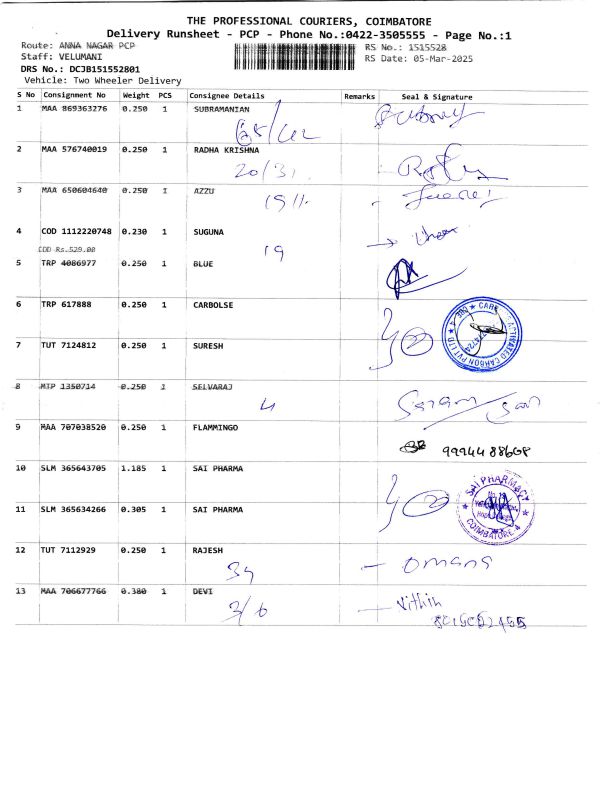 THE PROFESSIONAL COURIERS, COIMBATORE
Delivery Runsheet - PCP - Phone No.:0422-3505555 - Page No.:1
Route: ANNA NAGAR PCP
RS No.: 1515528
Staff: VELUMANI
RS Date: 05-Mar-2025
DRS No.: DCJB151552801
Vehicle: Two Wheeler Delivery
S No Consignment No Weight PCS Consignee Details Remarks Seal & Signature
1 MAA 869363276 0.250 1 SUBRAMANIAN
2 MAA 576740019 0.250 1 RADHA KRISHNA
20/31
3 MAA 650604640 0.250 1 AZZU
4 COD 1112220748 0.230 1 SUGUNA
COD Rs.529.00
19
5 TRP 4086977 0.250 1 BLUE
6 TRP 617888 0.250 1 CARBOLSE
7 TUT 7124812 0.250 1 SURESH
2
8 MTP 1350714 0.250 1 SELVARAJ
4
9 MAA 707038520 0.250 1 FLAMMINGO
9994488608
10 SLM 365643705 1.185 1 SAI PHARMA
SAI PHARMACY
11 SLM 365634266 0.305 1 SAI PHARMA
2
COIMBATORE
12 TUT 7112929 0.250 1 RAJESH
34 - omana
13 MAA 706677766 0.380 1 DEVI
3/6 - Nithin